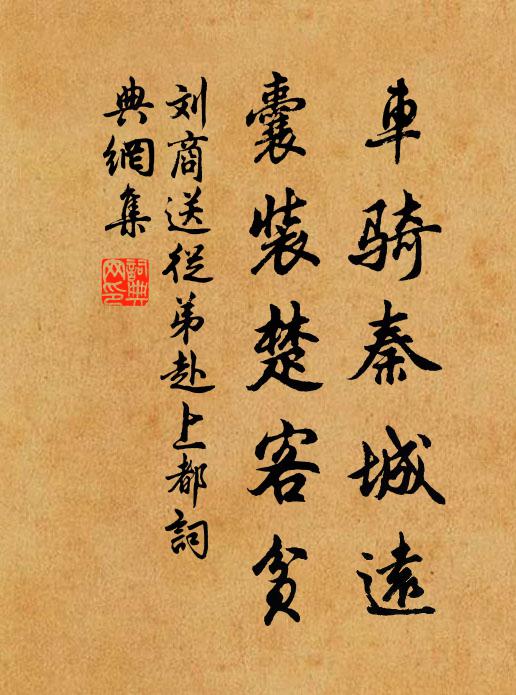 車騎秦城遠
囊裝楚客貧
刘商送從弟赴上都詞
典網集
詞典
网印